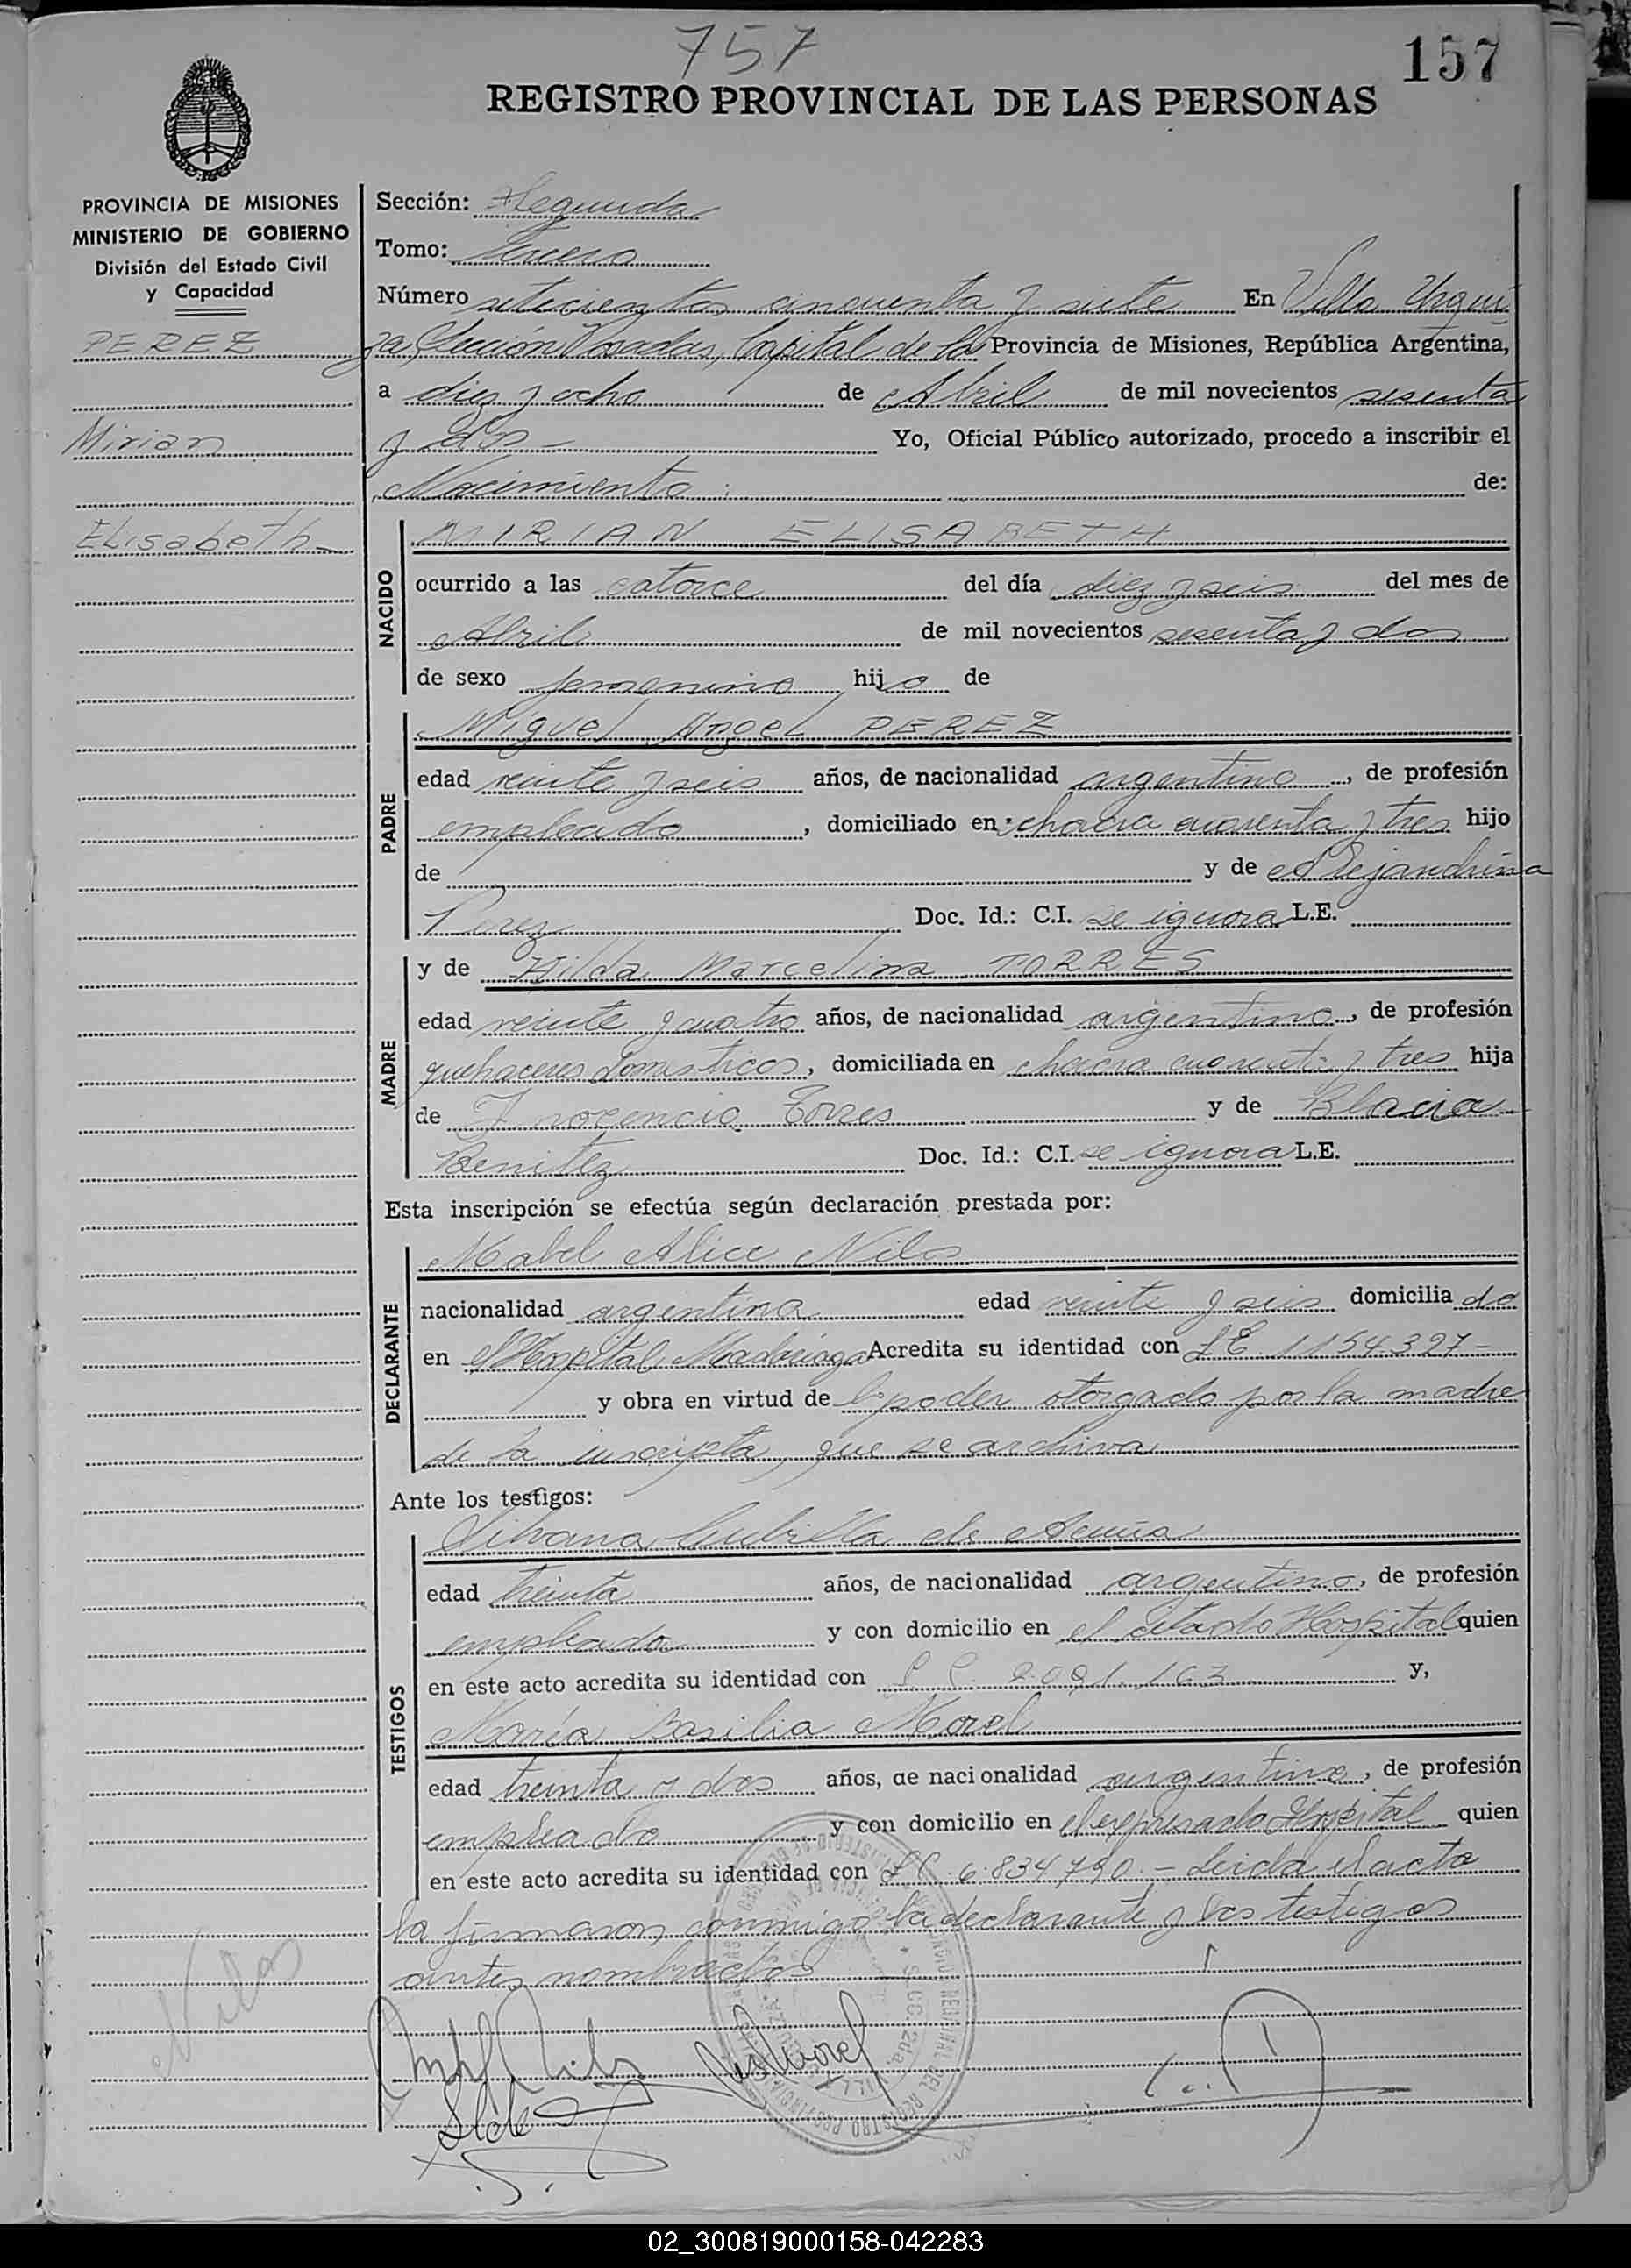 757
157
REGISTRO PROVINCIAL DE LAS PERSONAS
PROVINCIA DE MISIONES
MINISTERIO DE GOBIERNO
División del Estado Civil
y Capacidad
PEREZ
Mirian
Elisabeth
Sección: Segunda
Tomo: Tercero
Número setecientos cincuenta y siete En Villa Urqui
za, Sección Posadas, Capital de la Provincia de Misiones, República Argentina,
a diez y ocho de Abril de mil novecientos sesenta
y dos Yo, Oficial Público autorizado, procedo a inscribir el
Nacimiento de:
NACIDO
MIRIAN ELISABETH
ocurrido a las catorce del día diez y seis del mes de
Abril de mil novecientos sesenta y dos
de sexo femenino hijo de
PADRE
Miguel Angel PEREZ
edad veinte y seis años, de nacionalidad argentino, de profesión
empleado, domiciliado en: chacra cuarenta y tres hijo
de y de Alejandrina
Perez Doc. Id.: C.I. se ignora L.E.
MADRE
y de Hilda Marcelina TORRES
edad veinte y cuatro años, de nacionalidad argentino, de profesión
quehaceres domesticos, domiciliada en chacra cuarenta y tres hija
de Inocencio Torres y de Blacia
Benitez Doc. Id.: C.I. se ignora L.E.
Esta inscripción se efectúa según declaración prestada por:
DECLARANTE
Mabel Alice Nilos
nacionalidad argentina edad veinte y seis domicilia da
en el Hospital Madariaga Acredita su identidad con L E 1154327-
y obra en virtud de poder otorgado por la madre
de la inscripta, que se archiva
Ante los testigos:
TESTIGOS
Silvana Cubilla de Acuña
edad treinta años, de nacionalidad argentino, de profesión
empleada y con domicilio en el citado Hospital quien
en este acto acredita su identidad con L C 2.091.163 y,
María Basilia Morel
edad treinta y dos años, de nacionalidad argentino, de profesión
empleado y con domicilio en el expresado Hospital quien
en este acto acredita su identidad con L C. 6.834.790.- Leida el acta
la firmaron conmigo la declarante y los testigos
antes nombrados
Nilos
02_300819000158-042283